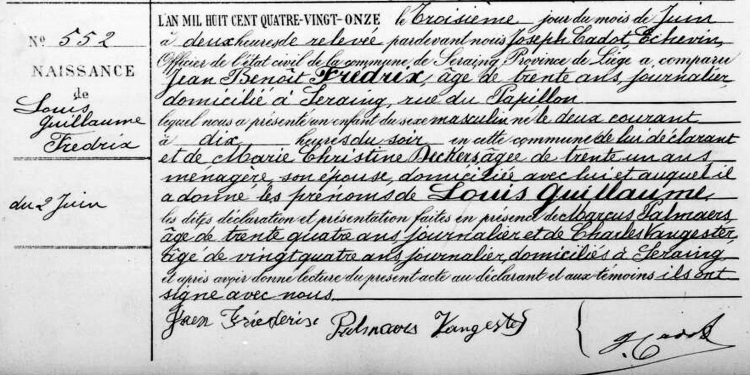 N° 552
NAISSANCE
de
Louis
Guillaume
Fredrix
du 2 Juin
L'AN MIL HUIT CENT QUATRE-VINGT-ONZE le Troisième jour du mois de Juin
à deux heures de relevée pardevant nous Joseph Cadot Echevin,
Officier de l'état civil de la commune de Seraing Province de Liége a comparu
Jean Benoît Fredrix, âge de trente ans, journalier
domicilié à Seraing, rue du Papillon
lequel nous a présenté un enfant du sexe masculin né le deux courant
à dix heures du soir en cette commune de lui déclarant
et de Marie Christine Dickers agée de trente un ans
ménagère, son épouse, domiciliée avec lui et auquel il
a donné les prénoms de Louis Guillaume.
les dites déclaration et présentation faites en présence de Marcus Palmaers
âge de trente quatre ans journalier et de Charles Vangester,
âge de vingt quatre ans journalier, domiciliés à Seraing
et après avoir donné lecture du present acte au déclarant et aux témoins ils ont
signé avec nous
Jean Vangester
J. Cadot